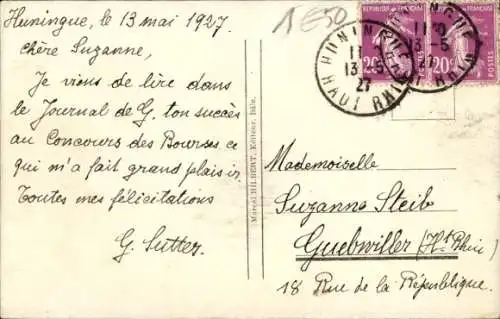 Huningue, le 13 mai 1927.
1€50
Chère Suzanne,
Je viens de lire dans
le Journal de G. ton succès
au Concours des Bourses, ce
qui m'a fait grand plaisir.
Toutes mes félicitations
G. Sutter
REPUBLIQUE FRANÇAISE
20c
POSTES
HUNINGUE
13-5
27
HAUT RHIN
Mademoiselle
Suzanne Steib
Guebwiller (Ht Rhin)
18 Rue de la République.